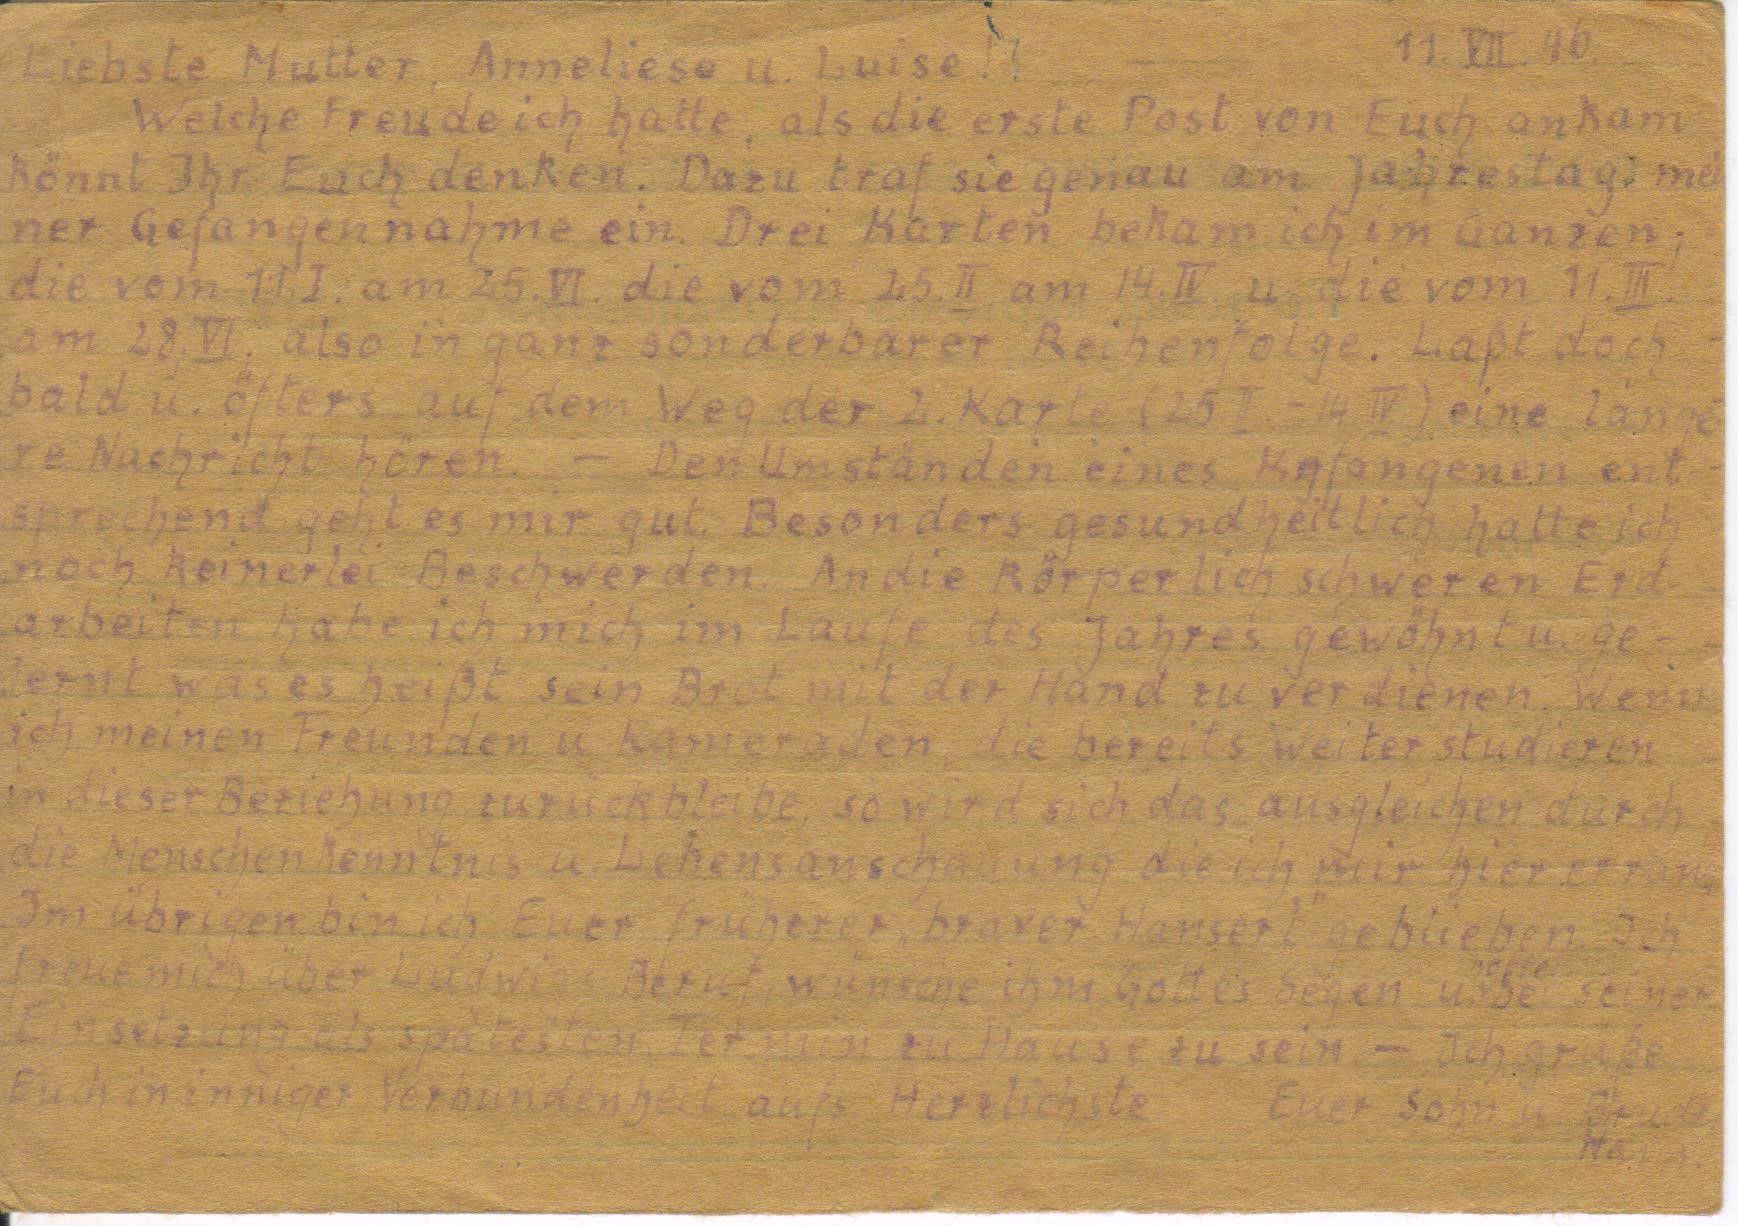 11. VII. 46.
Liebste Mutter, Anneliese u. Luise!!
Welche Freude ich hatte, als die erste Post von Euch ankam
könnt Ihr Euch denken. Dazu traf sie genau am Jahrestag mei
ner Gefangennahme ein. Drei Karten bekam ich im Ganzen;
die vom 11.I. am 25.VI. die vom 25.II am 14.IV. u. die vom 11.III.
am 28.VI., also in ganz sonderbarer Reihenfolge. Laßt doch
bald u. öfters auf dem Weg der 2. Karte (25 I - 14 IV) eine länge
re Nachricht hören. — Den Umständen eines Kgfangenen ent-
sprechend geht es mir gut. Besonders gesundheitlich hatte ich
noch keinerlei Beschwerden. An die körperlich schweren Erd-
arbeiten habe ich mich im Laufe des Jahres gewöhnt u. ge-
lernt was es heißt sein Brot mit der Hand zu verdienen. Wenn
ich meinen Freunden u. Kameraden, die bereits weiter studieren
in dieser Beziehung zurückbleibe, so wird sich das ausgleichen durch
die Menschenkenntnis u. Lebensanschauung die ich mir hier errang
Im übrigen bin ich Euer früherer, braver „Hanserl" geblieben. Ich
freue mich über Ludwigs Beruf, wünsche ihm Gottes Segen u. hoffe bei seiner
Einsetzung als spätesten Termin zu Hause zu sein — Ich grüße
Euch in inniger Verbundenheit aufs Herzlichste Euer Sohn u. Bruder
Hans.